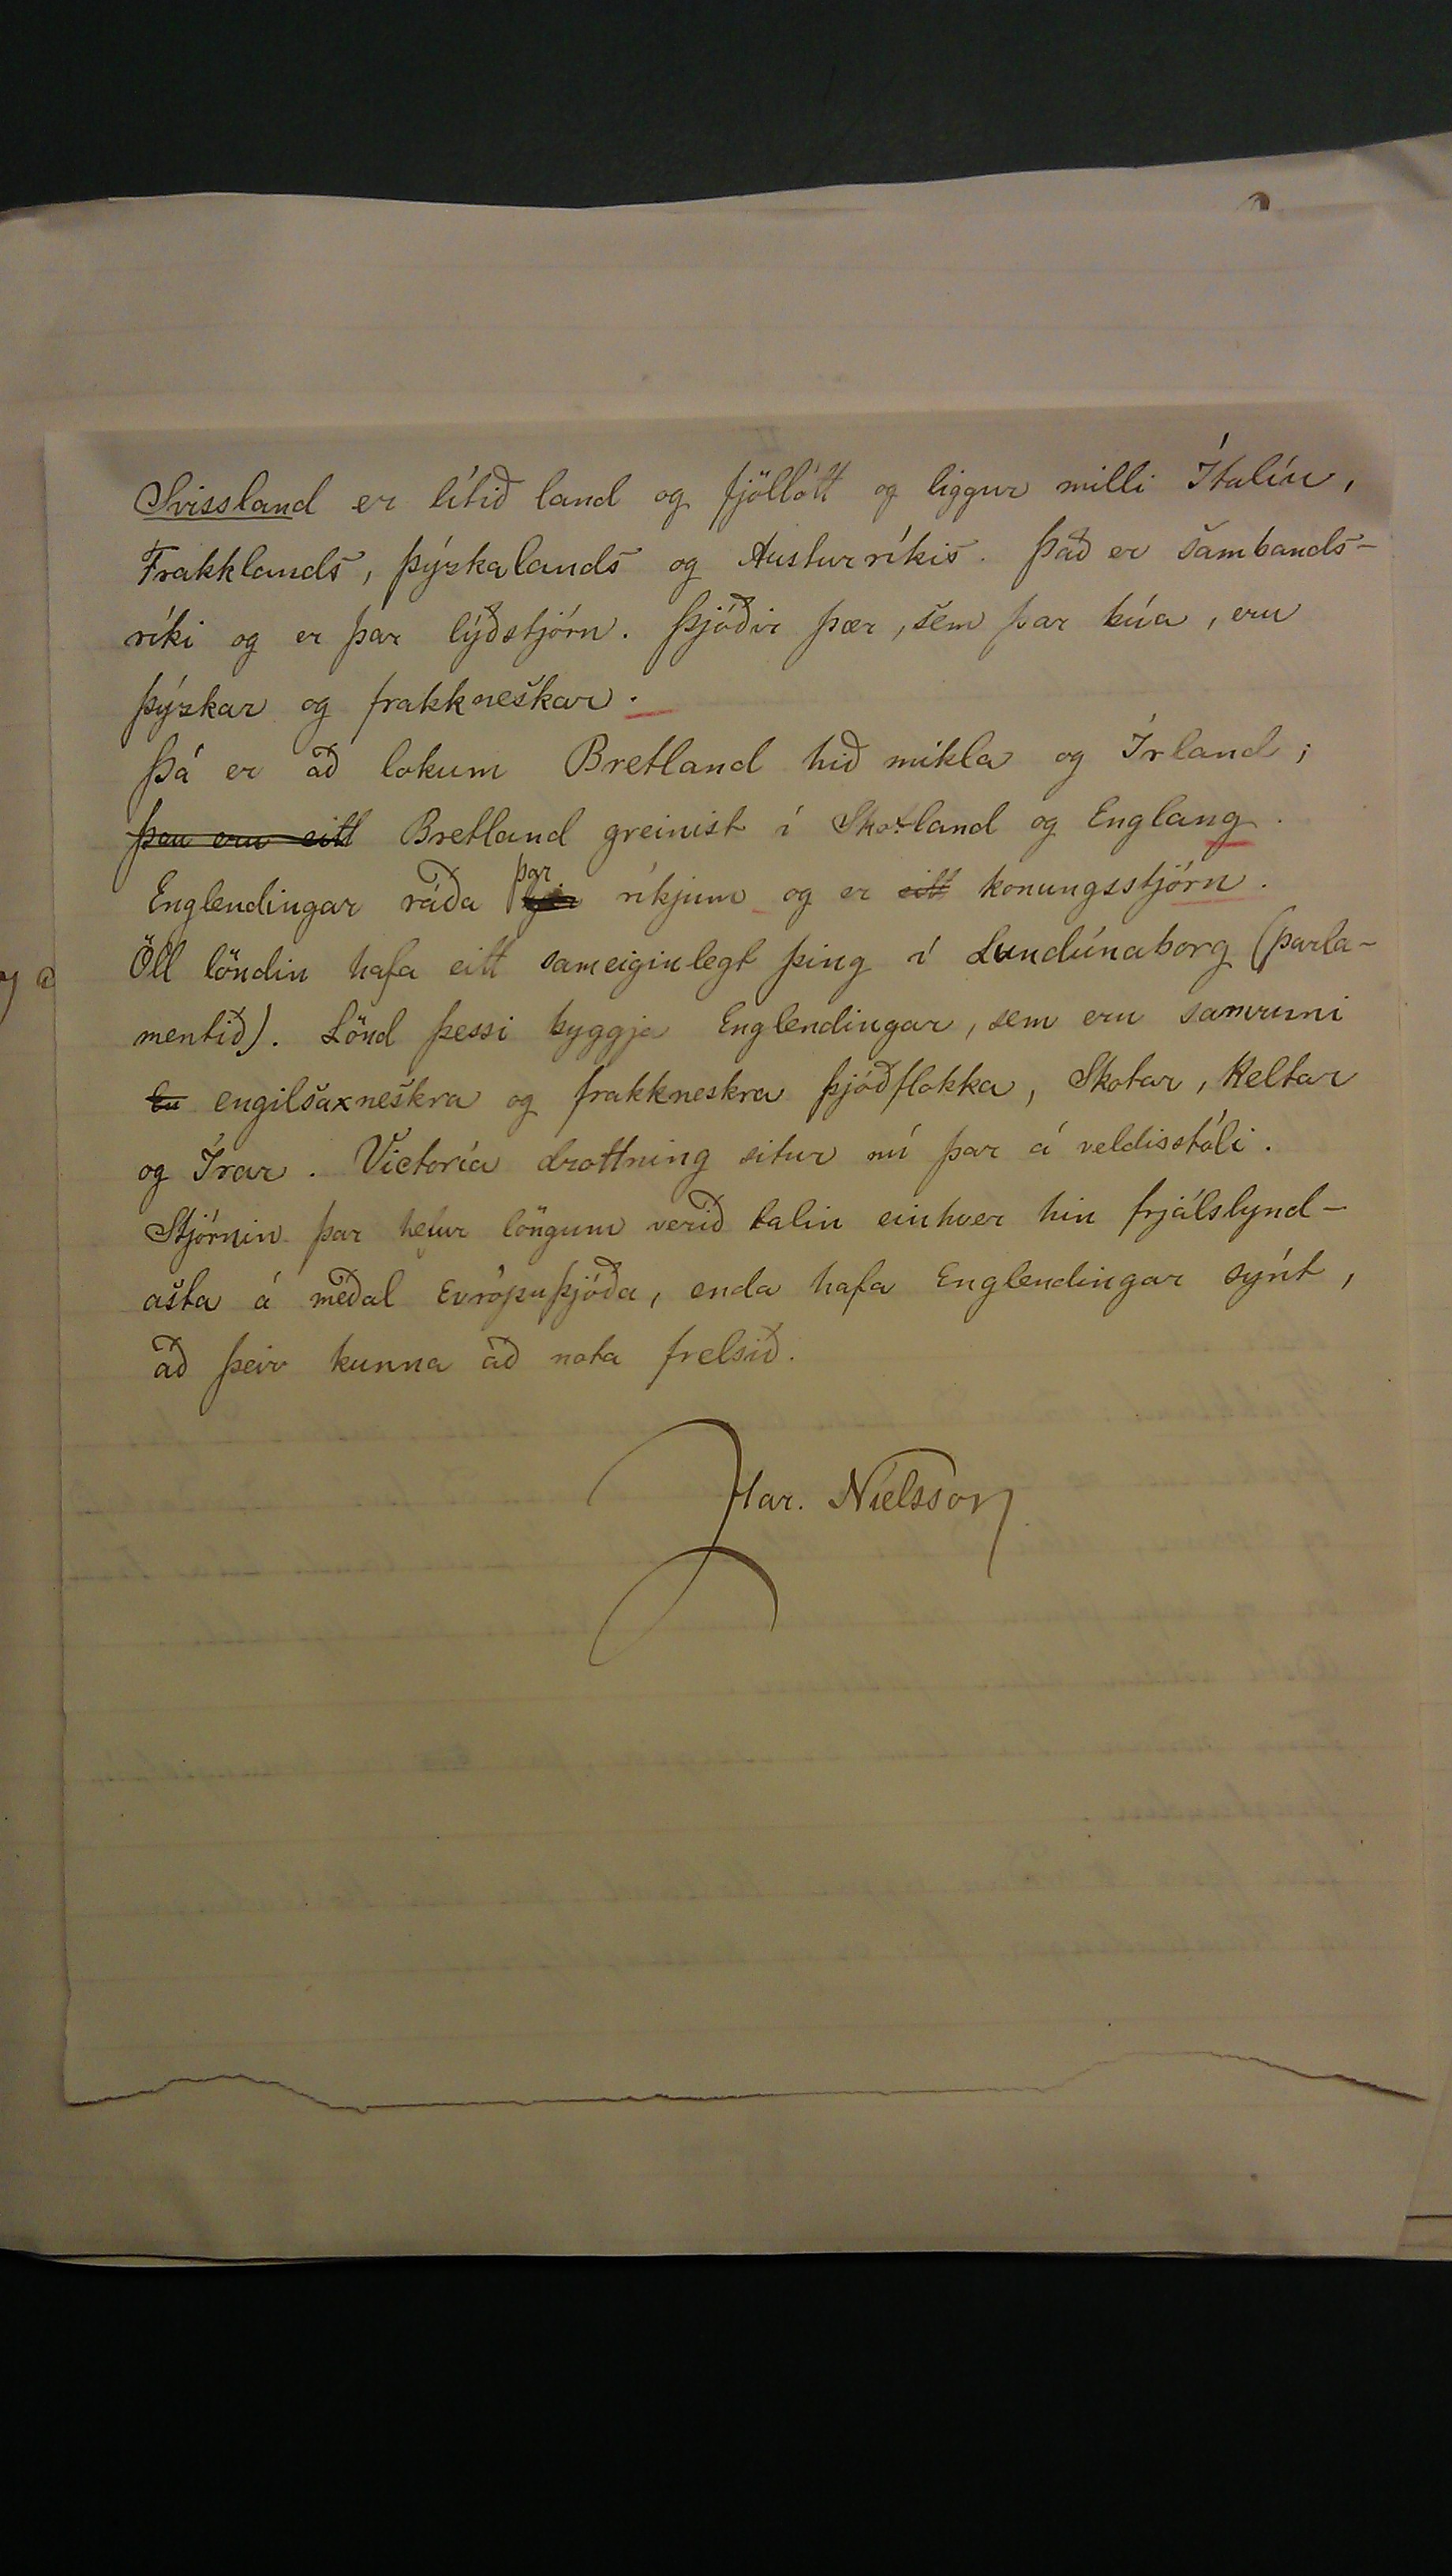 Svissland er lítið land og fjöllótt og liggur milli Ítalíu,
Frakklands, Þýzkalands og Austurríkis. Það er sambands-
ríki og er þar lýðstjórn. Þjóðir þær, sem þar búa, eru
þýzkar og frakkneskar.
Þá er að lokum Bretland hið mikla og Írland;
þau eru eitt Bretland greinist í Skotland og Englang.
Englendingar ráða þar ríkjum og er eitt konungsstjórn.
Öll löndin hafa eitt sameiginlegt þing í Lundúnaborg (parla-
mentið). Lönd þessi byggja Englendingar, sem eru samruni
engilsaxneskra og frakkneskra þjóðflokka, Skotar, Keltar
og Írar. Victoría drottning situr nú þar á veldisstóli.
Stjórnin þar hefur löngum verið talin einhver hin frjálslynd-
asta á meðal Evrópuþjóða, enda hafa Englendingar sýnt,
að þeir kunna að nota frelsið.
Har. Níelsson